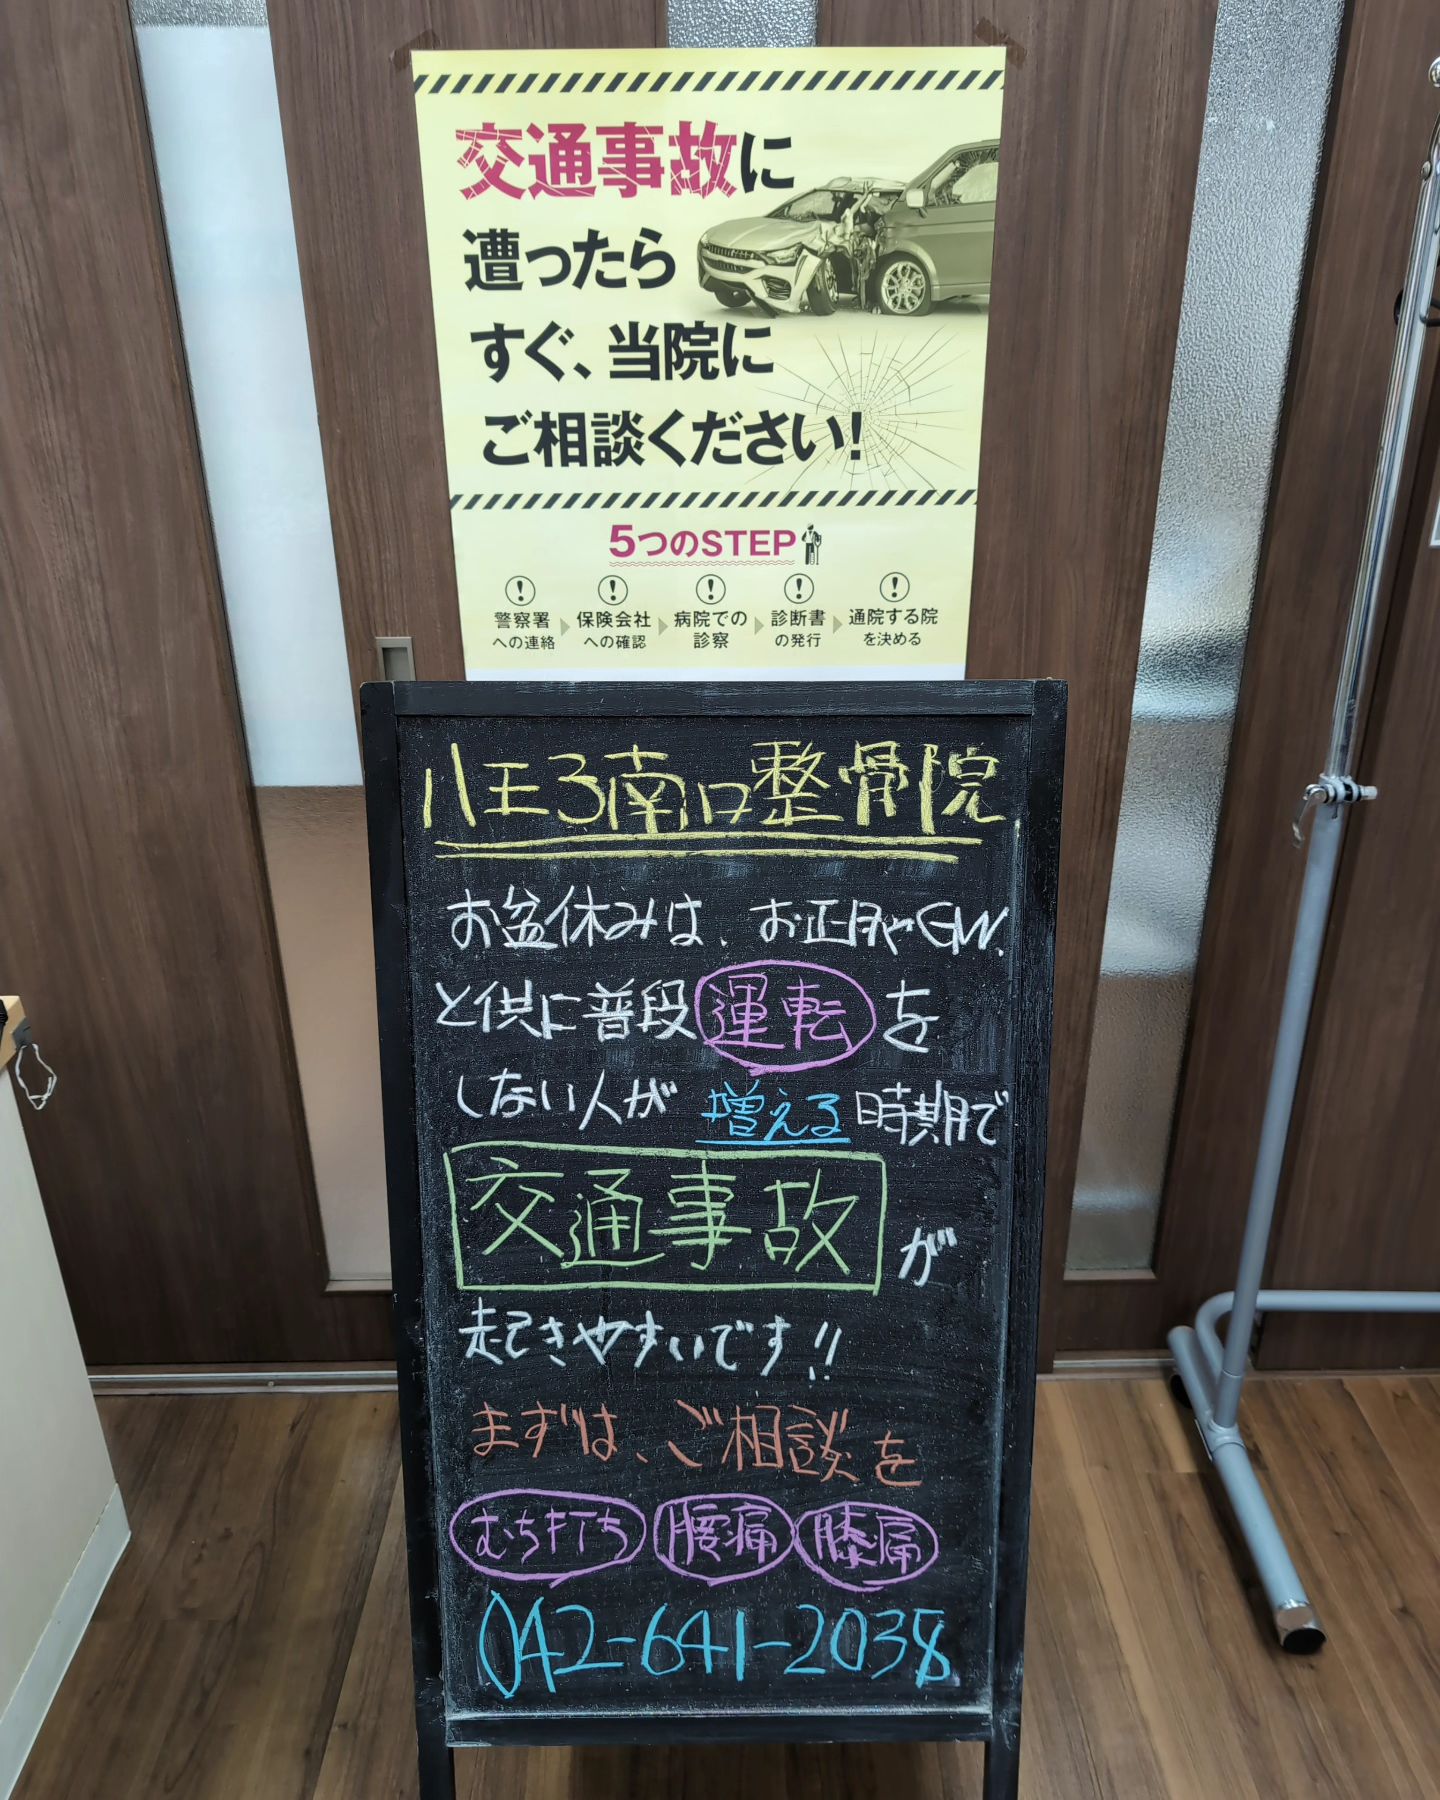 交通事故に
遭ったら
すぐ、当院に
ご相談ください!
5つのSTEP
警察署
への連絡
保険会社
への確認
病院での
診察
診断書
の発行
通院する院
を決める
八王子南口整骨院
お盆休みは、お正月やGW、
と供に普段運転を
しない人が増える時期で
交通事故が
起きやすいです!!
まずは、ご相談を
むち打ち 腰痛 膝痛
042-641-2038